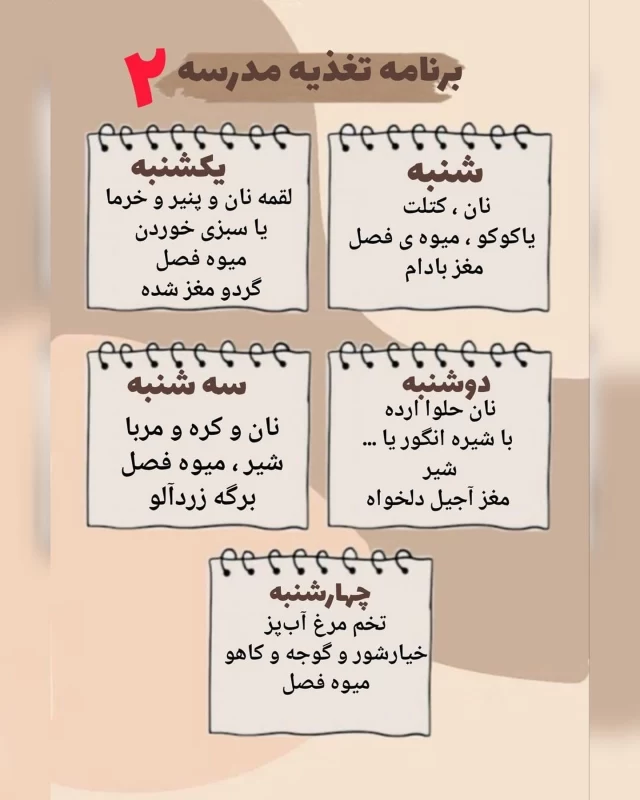 برنامه تغذیه مدرسه ۲
شنبه
نان ، کتلت
یاکوکو ، میوه ی فصل
مغز بادام
یکشنبه
لقمه نان و پنیر و خرما
یا سبزی خوردن
میوه فصل
گردو مغز شده
دوشنبه
نان حلوا ارده
با شیره انگور یا ...
شیر
مغز آجیل دلخواه
سه شنبه
نان و کره و مربا
شیر ، میوه فصل
برگه زردآلو
چهارشنبه
تخم مرغ آب‌پز
خیارشور و گوجه و کاهو
میوه فصل